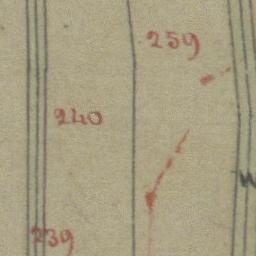 259
240
239